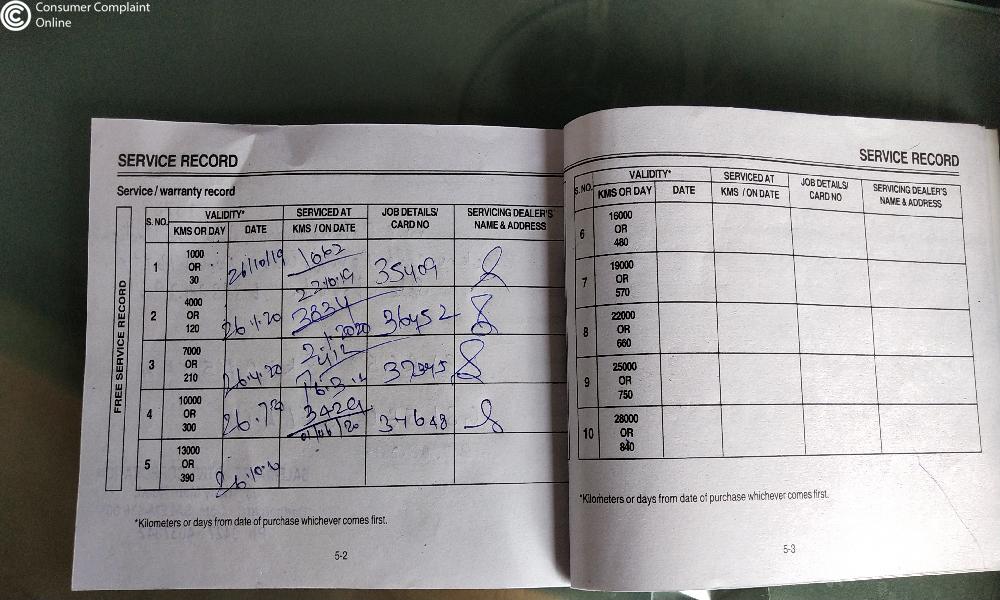 Consumer Complaint
Online
SERVICE RECORD
Service / warranty record
FREE SERVICE RECORD
S. NO. VALIDITY* SERVICED AT JOB DETAILS/ CARD NO SERVICING DEALER'S NAME & ADDRESS
KMS OR DAY DATE KMS / ON DATE
1 1000 OR 30 26/10/19 1062 22.10.19 35409
2 4000 OR 120 26.1.20 3834 2020 36452
3 7000 OR 210 26.4.20 16.3.
4 10000 OR 300 26.7.20 01/06/20 37648
5 13000 OR 390 26.10.
*Kilometers or days from date of purchase whichever comes first.
5-2
SERVICE RECORD
S. NO. VALIDITY* SERVICED AT JOB DETAILS/ CARD NO SERVICING DEALER'S NAME & ADDRESS
KMS OR DAY DATE KMS / ON DATE
6 16000 OR 480
7 19000 OR 570
8 22000 OR 660
9 25000 OR 750
10 28000 OR 840
*Kilometers or days from date of purchase whichever comes first.
5-3